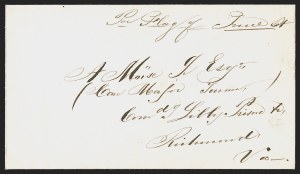 Per Flag of Truce
A
(Care Major Turner
Comdg Libby Prison &c
Richmond
Va